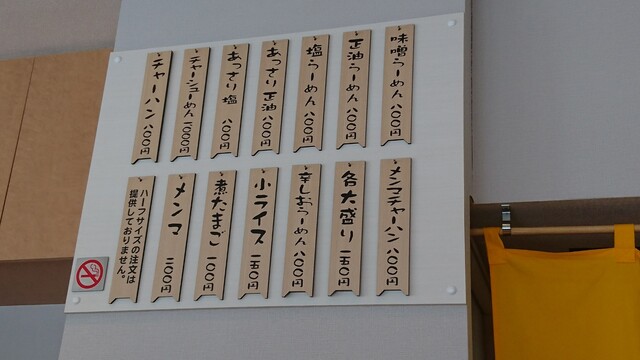 味噌らーめん 八〇〇円
正油らーめん 八〇〇円
塩らーめん 八〇〇円
あっさり正油 八〇〇円
あっさり塩 八〇〇円
チャーシューめん 1000円
チャーハン 八〇〇円
メンマチャーハン 八〇〇円
各大盛り 一五〇円
辛しおらーめん 八〇〇円
小ライス 一五〇円
煮たまご 一〇〇円
メンマ 二〇〇円
ハーフサイズの注文は
提供しておりません。